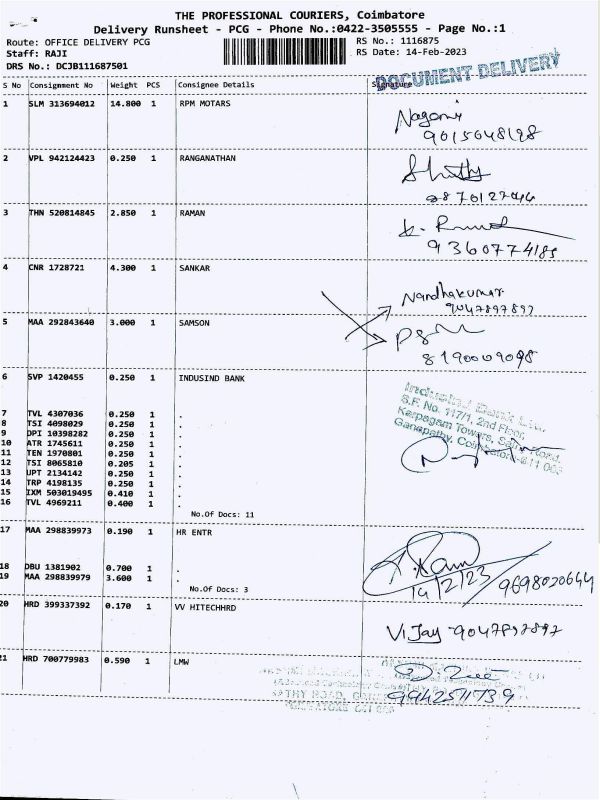 THE PROFESSIONAL COURIERS, Coimbatore
Delivery Runsheet - PCG - Phone No.:0422-3505555 - Page No.:1
Route: OFFICE DELIVERY PCG RS No.: 1116875
Staff: RAJI RS Date: 14-Feb-2023
DRS No.: DCJB111687501 DOCUMENT DELIVERY
S No Consignment No Weight PCS Consignee Details Signature
1 SLM 313694012 14.800 1 RPM MOTARS
Nagomi
9015048198
2 VPL 942124423 0.250 1 RANGANATHAN
3 THN 520814845 2.850 1 RAMAN
9360774185
4 CNR 1728721 4.300 1 SANKAR
Nandhakumar
9047897897
5 MAA 292843640 3.000 1 SAMSON
8190009098
6 SVP 1420455 0.250 1 INDUSIND BANK
IndusInd Bank Ltd.,
S.F. No. 117/1, 2nd Floor,
Karpagam Towers, Road,
Ganapathy, Coimbatore-
7 TVL 4307036 0.250 1 .
8 TSI 4098029 0.250 1 .
9 DPI 10398282 0.250 1 .
10 ATR 1745611 0.250 1 .
11 TEN 1970801 0.250 1 .
12 TSI 8065810 0.205 1 .
13 UPT 2134142 0.250 1 .
14 TRP 4198135 0.250 1 .
15 IXM 503019495 0.410 1 .
16 TVL 4969211 0.400 1 .
No.Of Docs: 11
17 MAA 298839973 0.190 1 HR ENTR
18 DBU 1381902 0.700 1 .
19 MAA 298839979 3.600 1 .
No.Of Docs: 3
14/2/23 9698020644
20 HRD 399337392 0.170 1 VV HITECHHRD
Vijay - 9047897897
21 HRD 700779983 0.590 1 LMW
9942511739